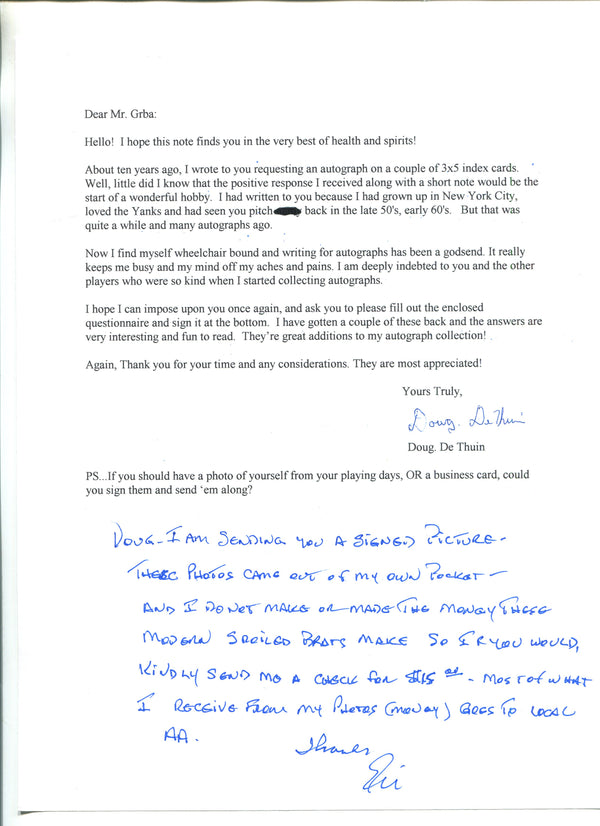 Dear Mr. Grba:
Hello!  I hope this note finds you in the very best of health and spirits!
About ten years ago, I wrote to you requesting an autograph on a couple of 3x5 index cards.
Well, little did I know that the positive response I received along with a short note would be the
start of a wonderful hobby.  I had written to you because I had grown up in New York City,
loved the Yanks and had seen you pitch back in the late 50's, early 60's.   But that was
quite a while and many autographs ago.
Now I find myself wheelchair bound and writing for autographs has been a godsend. It really
keeps me busy and my mind off my aches and pains. I am deeply indebted to you and the other
players who were so kind when I started collecting autographs.
I hope I can impose upon you once again, and ask you to please fill out the enclosed
questionnaire and sign it at the bottom.  I have gotten a couple of these back and the answers are
very interesting and fun to read.  They're great additions to my autograph collection!
Again, Thank you for your time and any considerations. They are most appreciated!
Yours Truly,
Doug. De Thuin
Doug. De Thuin
PS...If you should have a photo of yourself from your playing days, OR a business card, could
you sign them and send 'em along?
DOUG - I AM SENDING YOU A SIGNED PICTURE -
THESE PHOTOS CAME OUT OF MY OWN POCKET -
AND I DO NOT MAKE OR MADE THE MONEY THESE
MODERN SPOILED BRATS MAKE SO IF YOU WOULD,
KINDLY SEND ME A CHECK FOR $15 00 - MOST OF WHAT
I RECEIVE FROM MY PHOTOS (MONEY) GOES TO LOCAL
AA.
Thanks
Eli